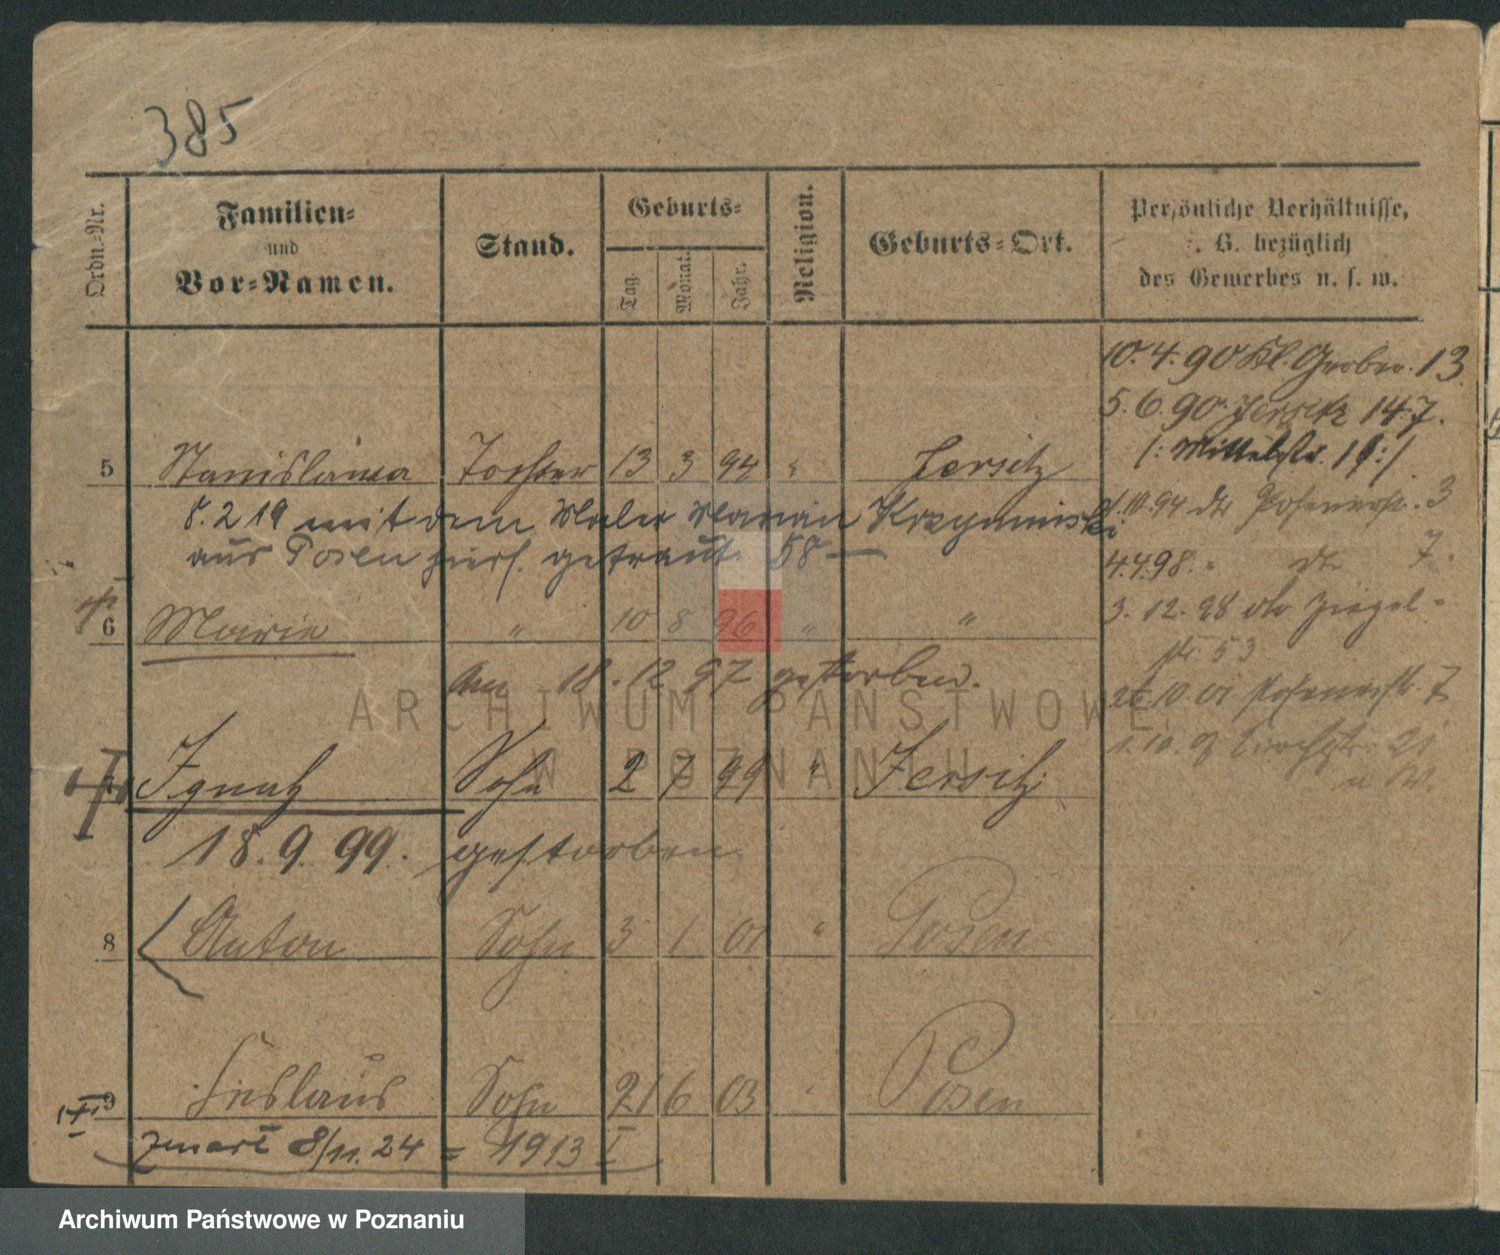 385
Ordn.-Nr.
Familien-
und
Vor-Namen.
Stand.
Geburts-
Tag.
Monat.
Jahr.
Religion.
Geburts-Ort.
Persönliche Verhältnisse,
z. B. bezüglich
des Gewerbes u. s. w.
10.4.90 Kl. Gerber. 13
5.6.90 Jersitz 147.
5 Stanislawa Tochter 13 3 94 " Jersitz
/: Mittelstr. 19 :/
8.2 19 mit dem Maler Marian Krzyminski
10.94 dto Posenerstr. 3
aus Posen getraut. 58 —
4.4.98. " dto 7.
6 Marie " 10 8 96 " "
3.12.98 dto Ziegel-
str. 53
am 18.12 97 gestorben.
26.10.01 Posenerstr. 7
Ignatz Sohn 2 7 99 " Jersitz
1.10.07 21
18.9.99. gestorben
8 Anton Sohn 3 1 01 " Posen
9 Ceslaus Sohn 21 6 03 " Posen
zmarł 8/11.24 = 1913 I
ARCHIWUM PAŃSTWOWE
W POZNANIU
Archiwum Państwowe w Poznaniu